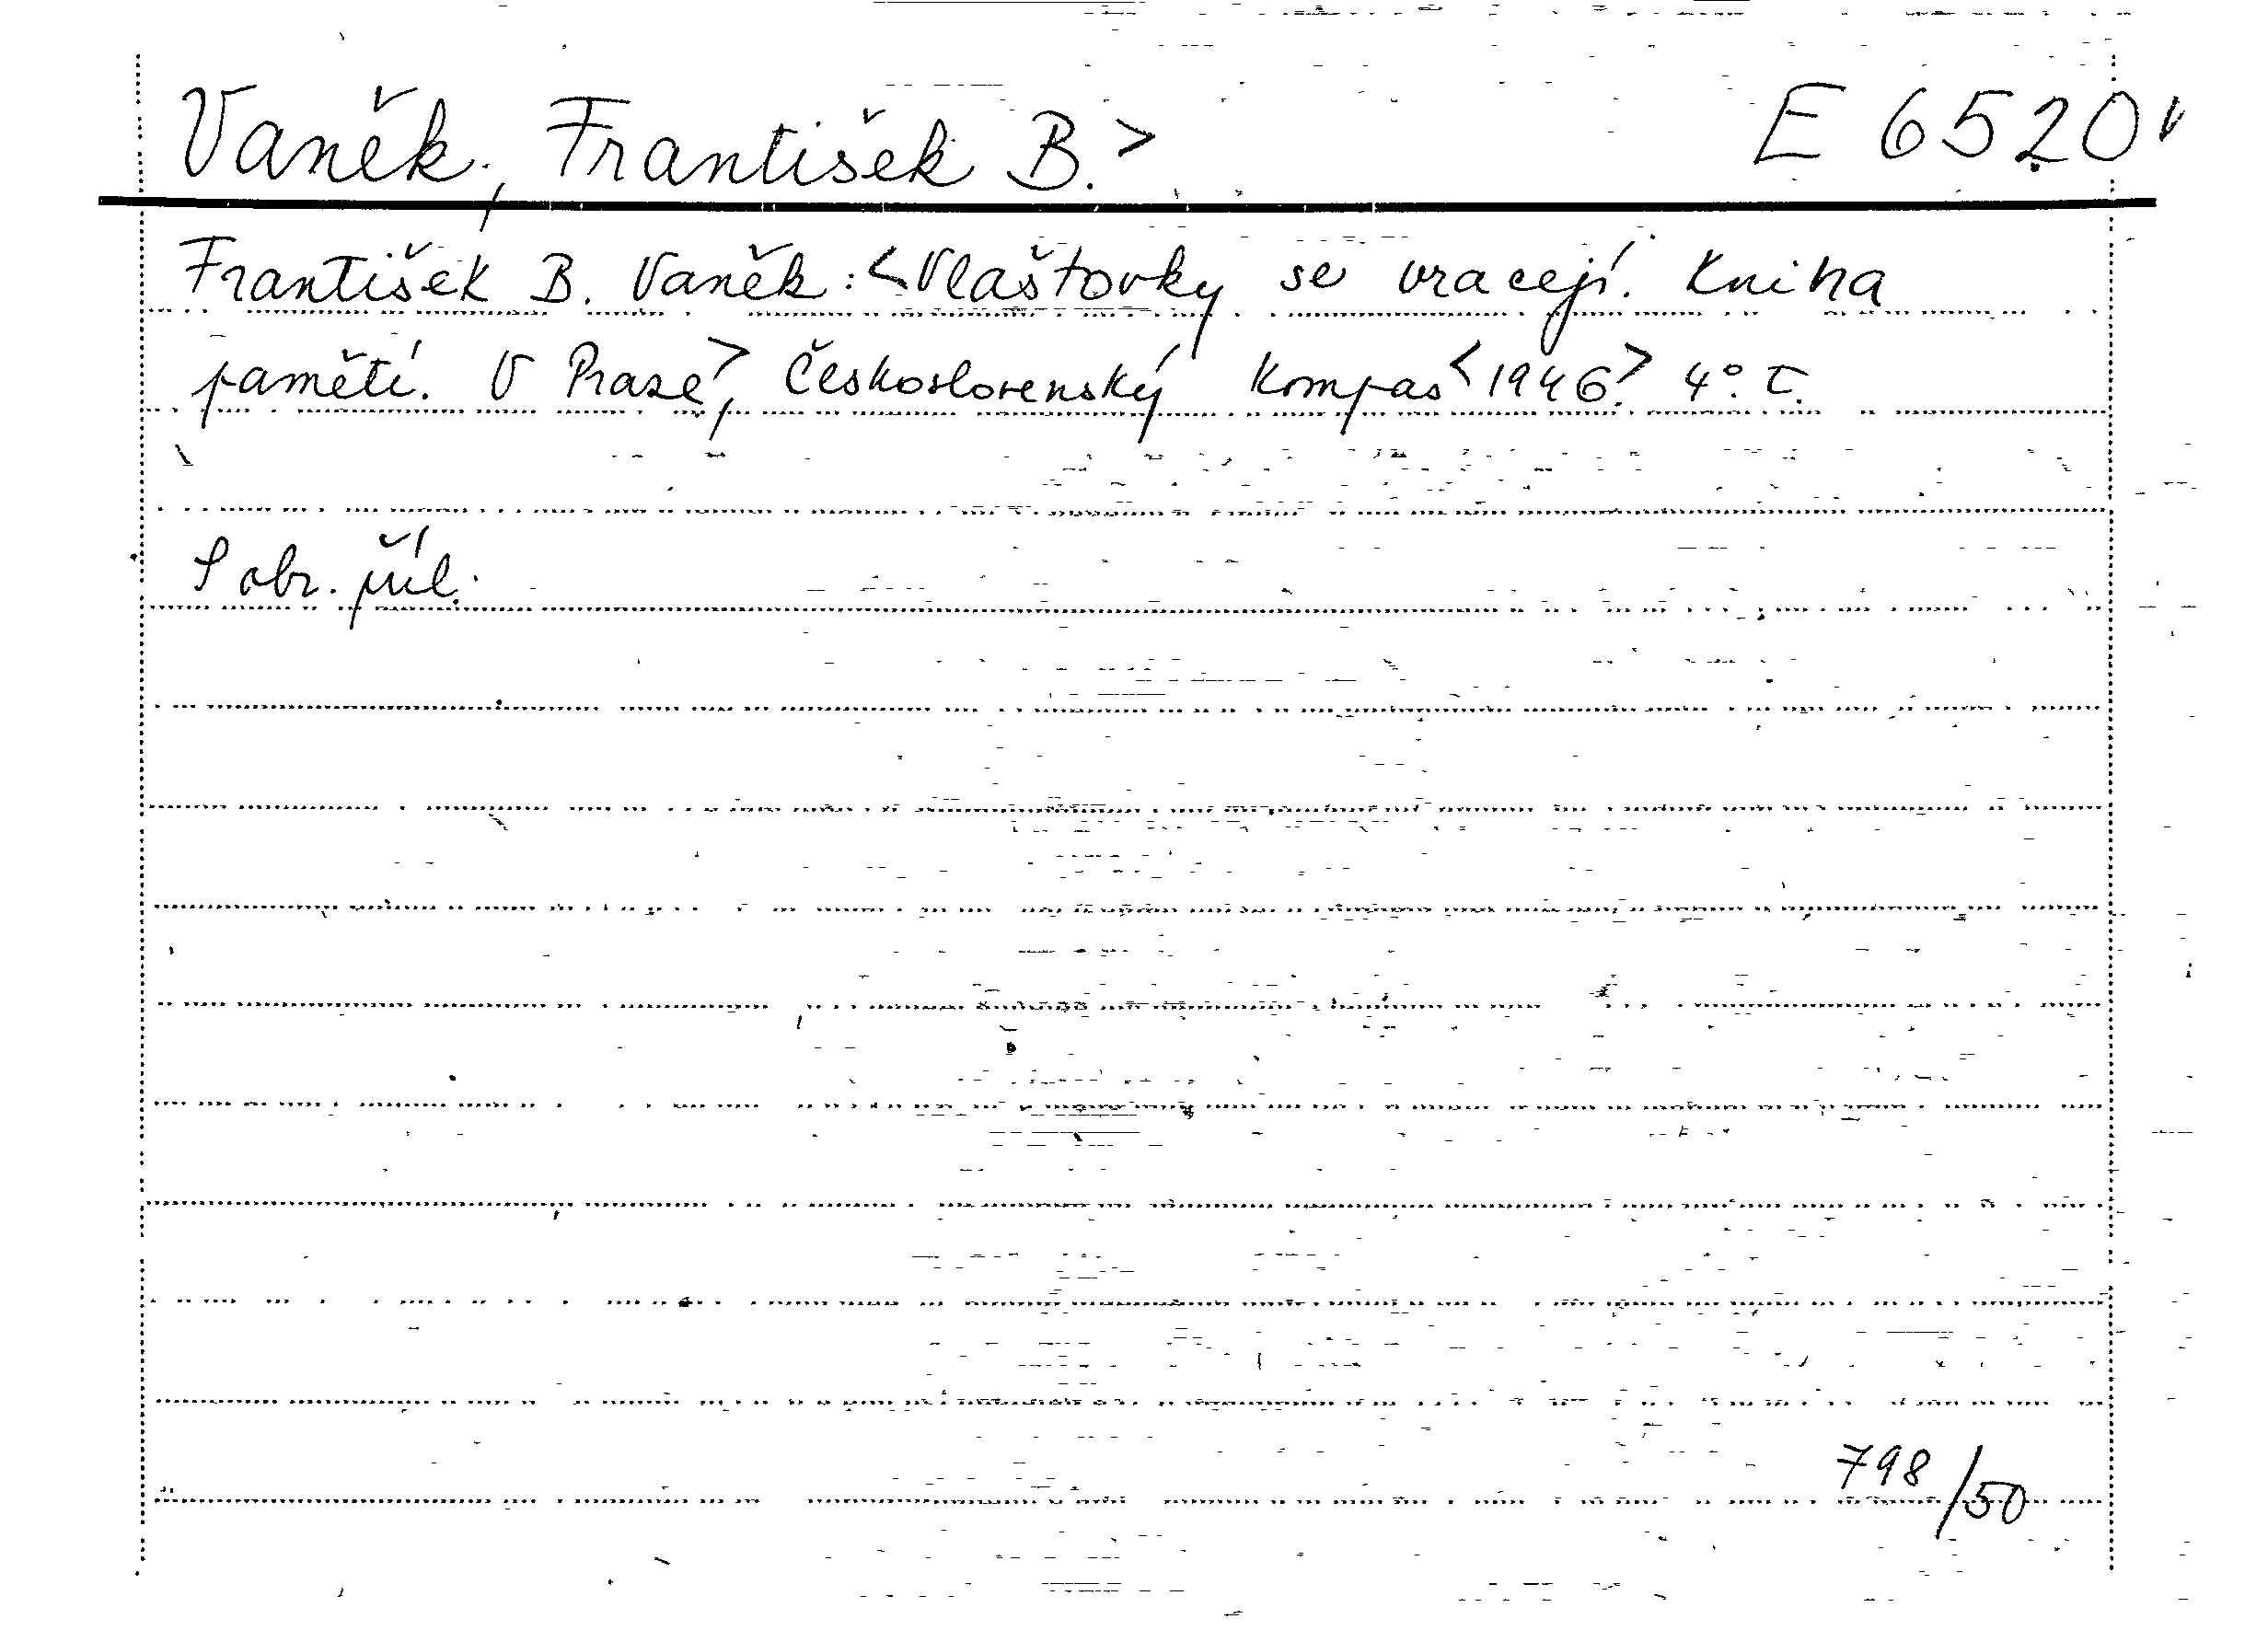 Vaněk, František B.> E 6520
František B. Vaněk: <Vlaštovky se vracejí. Kniha
pamětí. V Praze>, Československý Kompas <1946>. 4°. T.
S obr. příl.
798/50